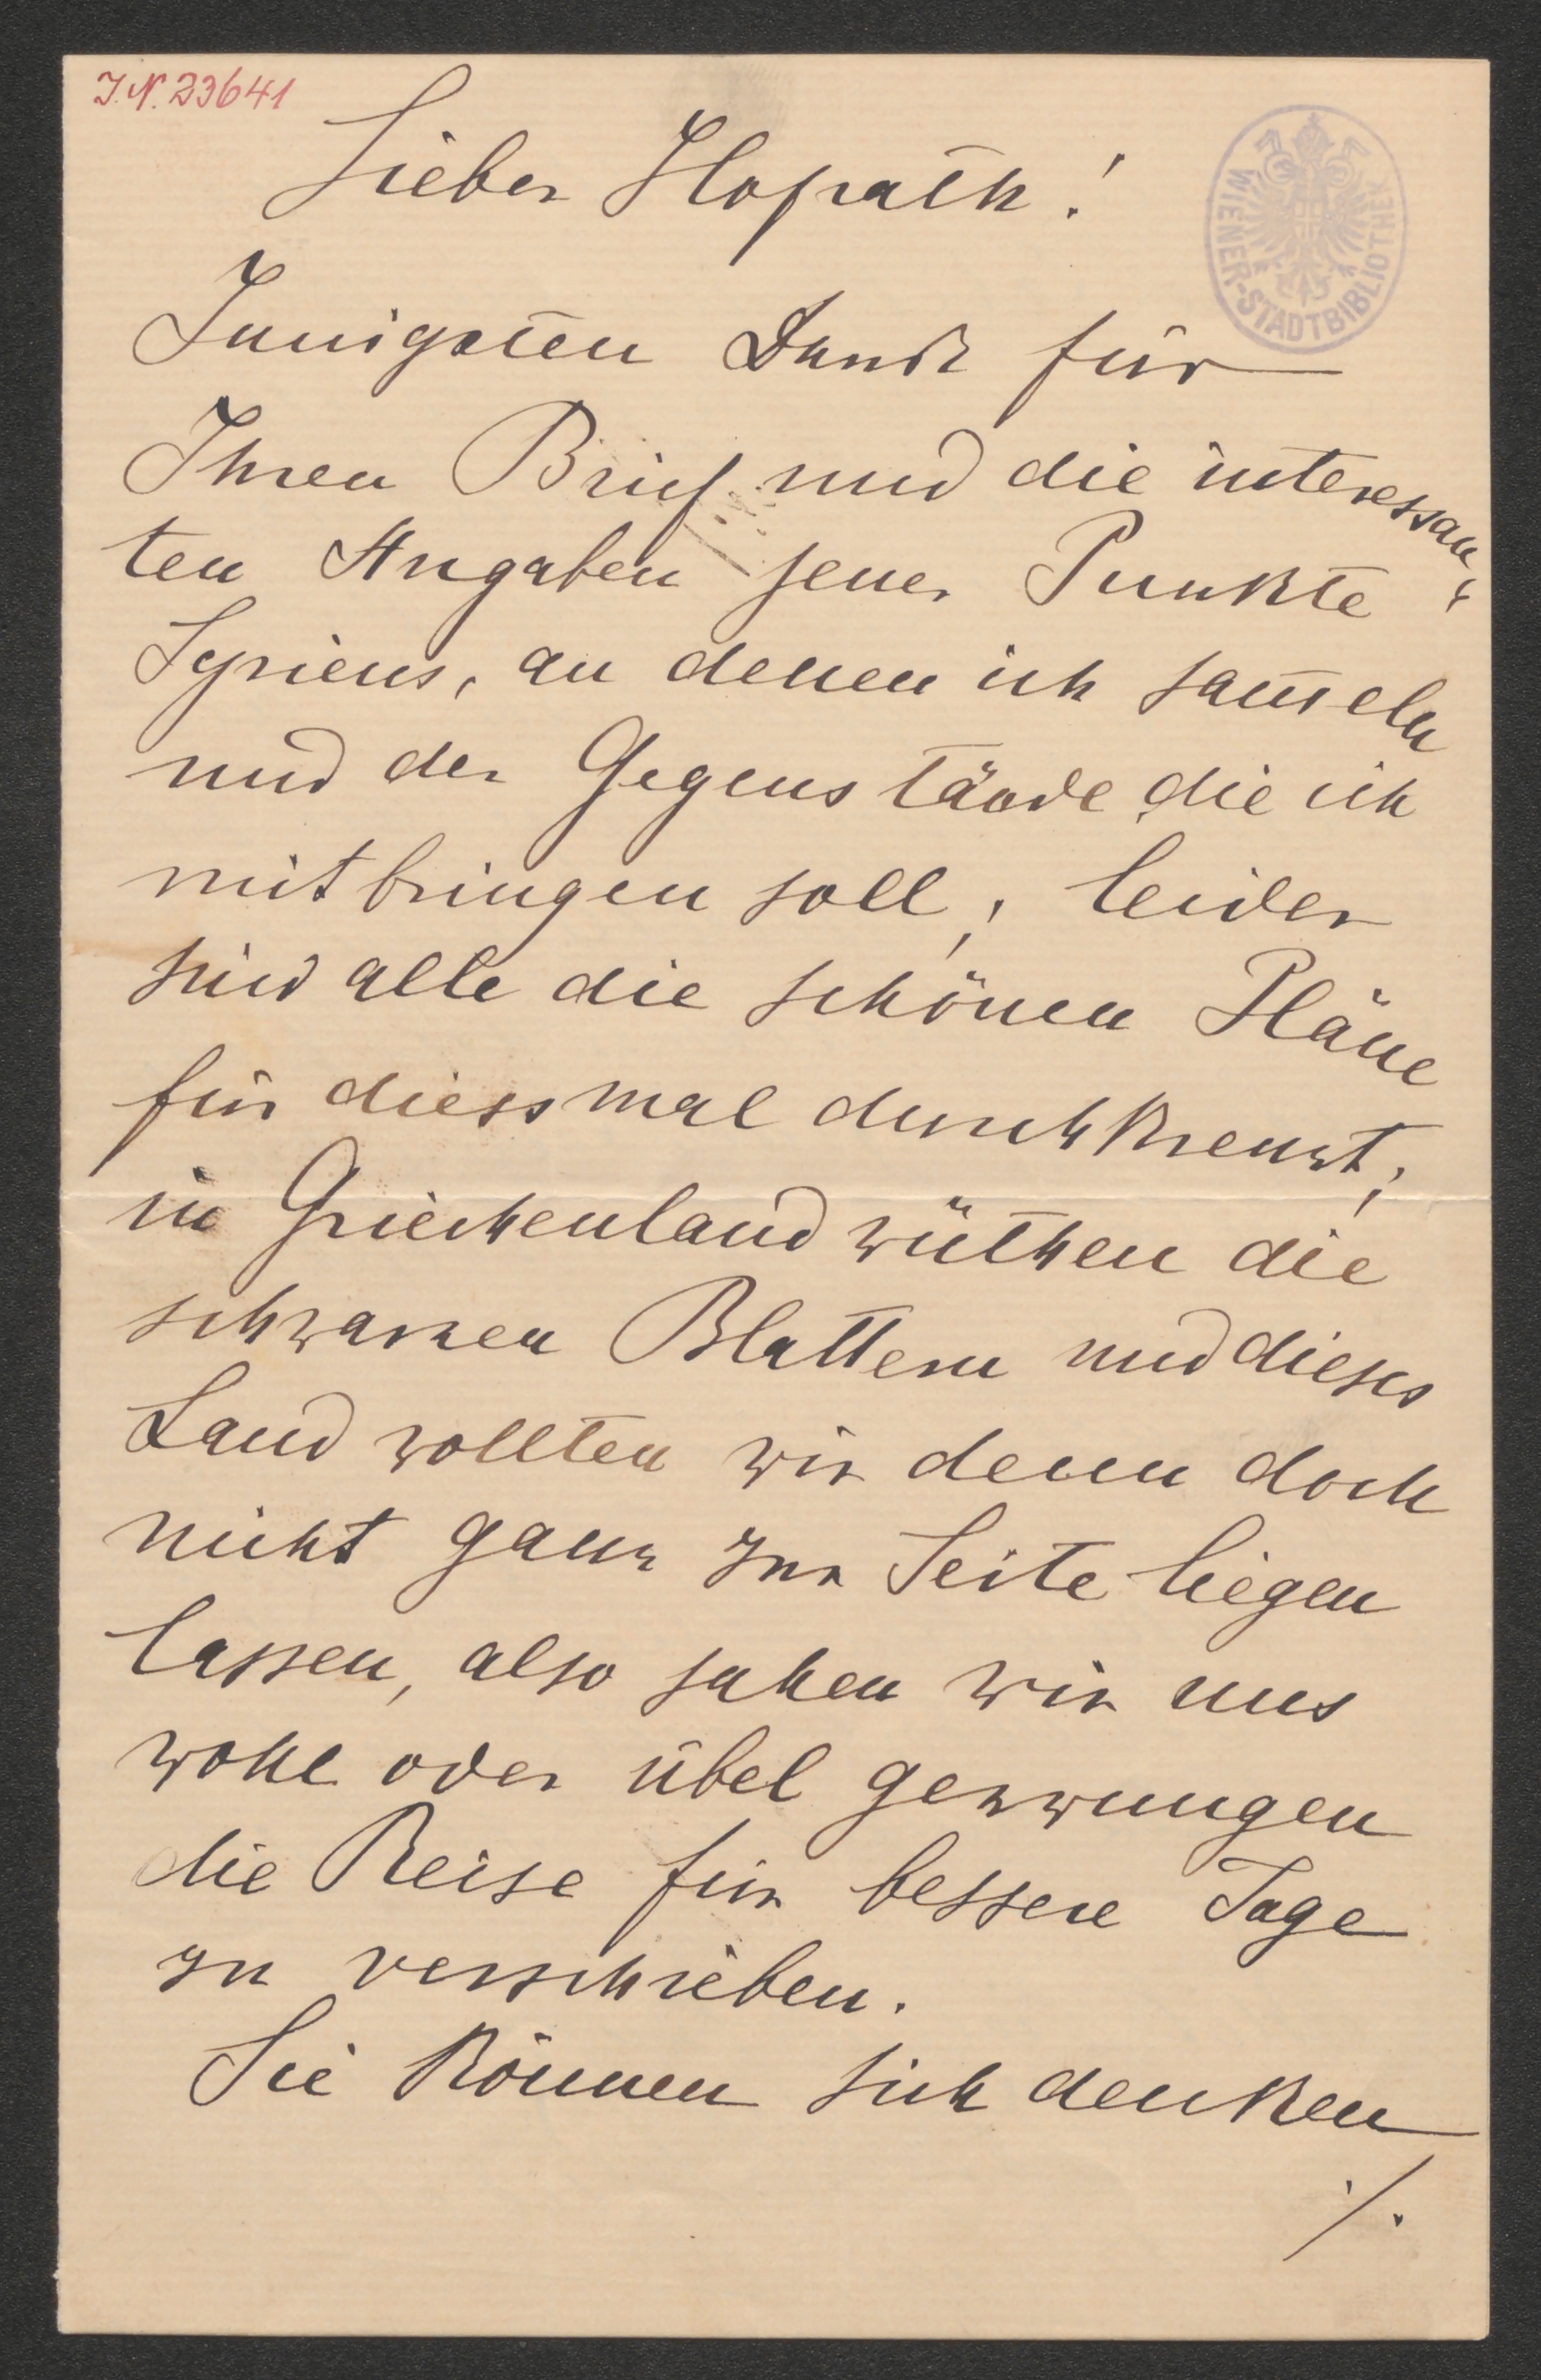 J.N. 23641
Lieber Hofrath!
WIENER-STADTBIBLIOTHEK
Innigsten Dank für
Ihren Brief und die interessan-
ten Angaben jener Punkte
Syriens, an denen ich sam̅eln
und der Gegenstände die ich
mitbringen soll; leider
sind alle die schönen Pläne
für diessmal durchkreuzt;
in Griechenland wüthen die
schwarzen Blattern und dieses
Land wollten wir denn doch
nicht ganz zur Seite liegen
lassen, also sahen wir uns
wohl oder übel gezwungen
die Reise für bessere Tage
zu verschieben.
Sie können sich denken
./.